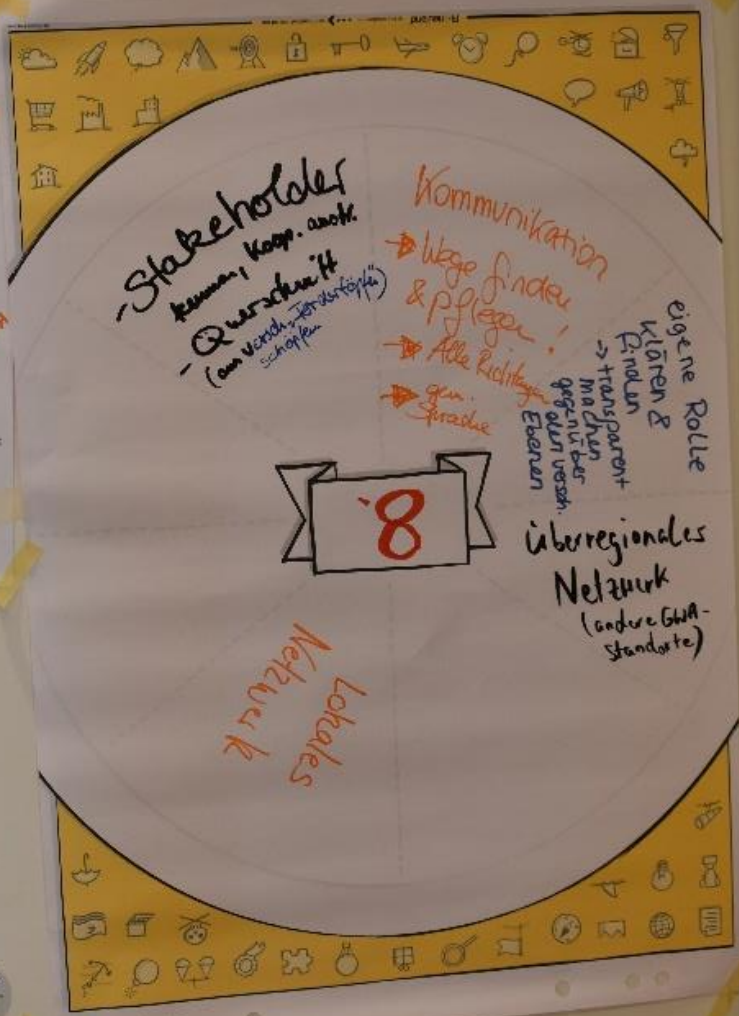 - Stakeholder
kennen, Koop. anstr.
- Querschnitt
(aus versch. Fördertöpfen)
schöpfen
Kommunikation
→ Wege finden
& pflegen!
→ Alle Richtungen
→ gem.
Sprache
eigene Rolle
klären &
finden
→ transparent
machen
gegenüber
den versch.
Ebenen
8
überregionales
Netzwerk
(andere GWA-
Standorte)
Lokales
Netzwerk